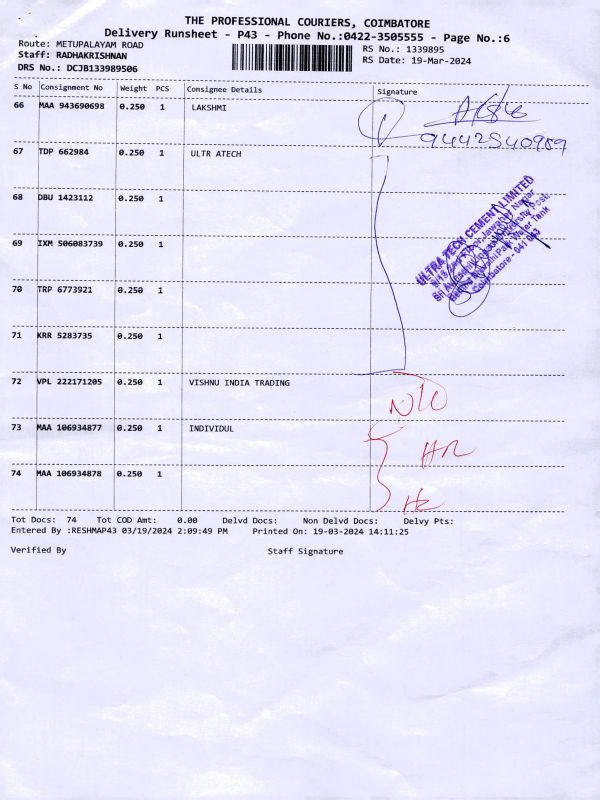 THE PROFESSIONAL COURIERS, COIMBATORE
Delivery Runsheet - P43 - Phone No.:0422-3505555 - Page No.:6
Route: METUPALAYAM ROAD
Staff: RADHAKRISHNAN
DRS No.: DCJB133989506
RS No.: 1339895
RS Date: 19-Mar-2024
S No Consignment No Weight PCS Consignee Details Signature
66 MAA 943690698 0.250 1 LAKSHMI
9442540989
67 TDP 662984 0.250 1 ULTR ATECH
68 DBU 1423112 0.250 1
69 IXM 506083739 0.250 1
ULTRA TECH CEMENT LIMITED
Coimbatore - 641 043
70 TRP 6773921 0.250 1
71 KRR 5283735 0.250 1
72 VPL 222171205 0.250 1 VISHNU INDIA TRADING
73 MAA 106934877 0.250 1 INDIVIDUL
74 MAA 106934878 0.250 1
Tot Docs: 74 Tot COD Amt: 0.00 Delvd Docs: Non Delvd Docs: Delvy Pts:
Entered By :RESHMAP43 03/19/2024 2:09:49 PM Printed On: 19-03-2024 14:11:25
Verified By Staff Signature